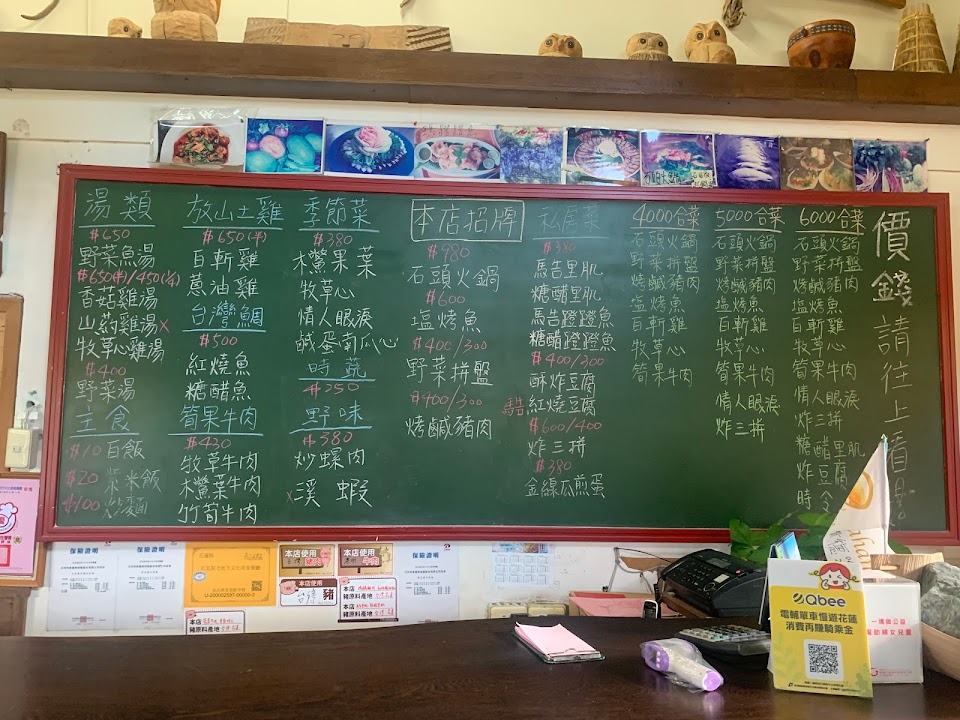 湯類
$650
野菜魚湯
$650(半)/450(¼)
香菇雞湯
山药雞湯x
牧草心雞湯
$400
野菜湯
主食
$10 白飯
$20 紫米飯
$100 炒麵
放山土雞
$650(半)
白斬雞
蔥油雞
台灣鯛
$500
紅燒魚
糖醋魚
筍果牛肉
$420
牧草牛肉
木鱉葉牛肉
竹筍牛肉
季節菜
$380
木鱉果葉
牧草心
情人眼淚
鹹蛋南瓜心
時蔬
$250
野味
$580
炒螺肉
x溪蝦
本店招牌
$980
石頭火鍋
$600
塩烤魚
$400/300
野菜拼盤
$400/300
烤鹹豬肉
私房菜
$380
馬告里肌
糖醋里肌
馬告蹬蹬魚
糖醋蹬蹬魚
$400/300
酥炸豆腐
馬告紅燒豆腐
$600/400
炸三拼
$380
金線瓜煎蛋
4000合菜
石頭火鍋
野菜拼盤
烤鹹豬肉
塩烤魚
白斬雞
牧草心
筍果牛肉
5000合菜
石頭火鍋
野菜拼盤
烤鹹豬肉
塩烤魚
白斬雞
牧草心
筍果牛肉
情人眼淚
炸三拼
6000合菜
石頭火鍋
野菜拼盤
烤鹹豬肉
塩烤魚
白斬雞
牧草心
筍果牛肉
情人眼淚
炸三拼
糖醋里肌
炸豆腐
時令
價錢請往上看
保險證明
保險證明
本店使用
本店使用
牛肉
本店使用
台灣豬
本店
豬原料產地
本店
豬原料產地
本店使用
豬原料產地
保險證明
Qbee
電輔單車慢遊花蓮
消費再賺騎乘金
一塊做公益
幫助婦女兒童